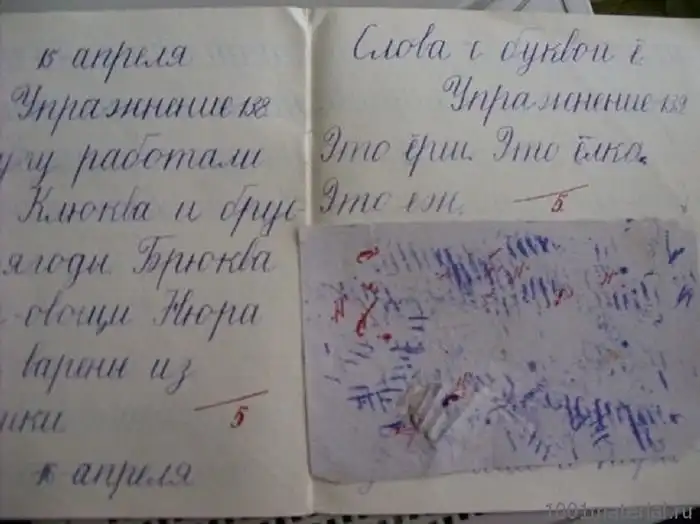 15 апреля
Упражнение 158.
лугу работали
Клюква и брус-
ягоды. Брюква
овощи Нюра
варенье из
5
апреля
Слова с буквой ё
Упражнение 159
Это ёрш. Это ёлка.
Это еж.
5
1001material.ru